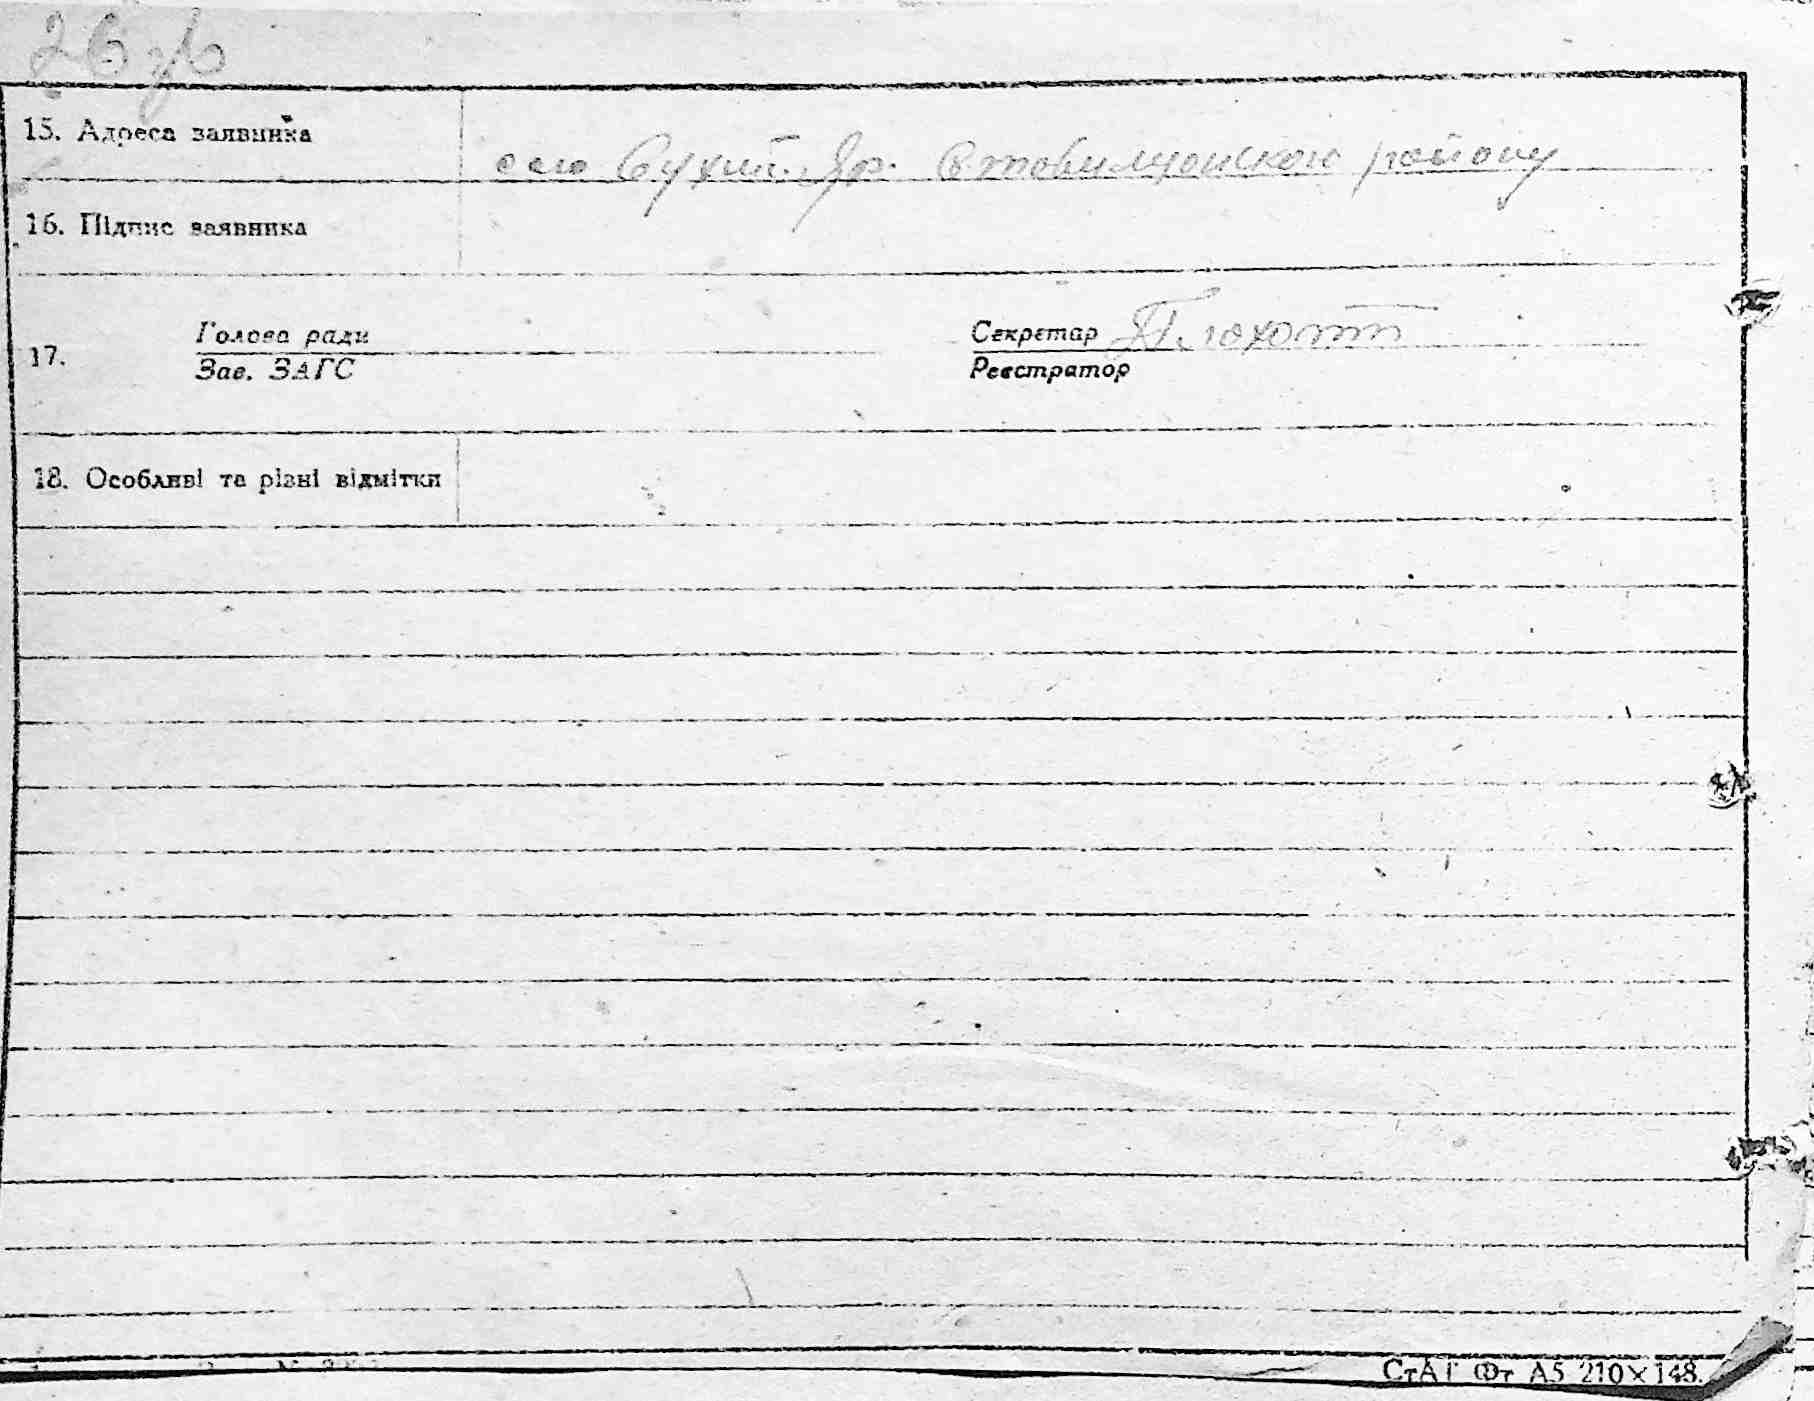 26 зв
15. Адреса заявника
село Сухий Яр. Ставищанського району
16. Підпис заявника
17.
Голова ради
Секретар
Зав. ЗАГС
Реєстратор
18. Особливі та різні відмітки
СтАТ Фт А5 210×148.